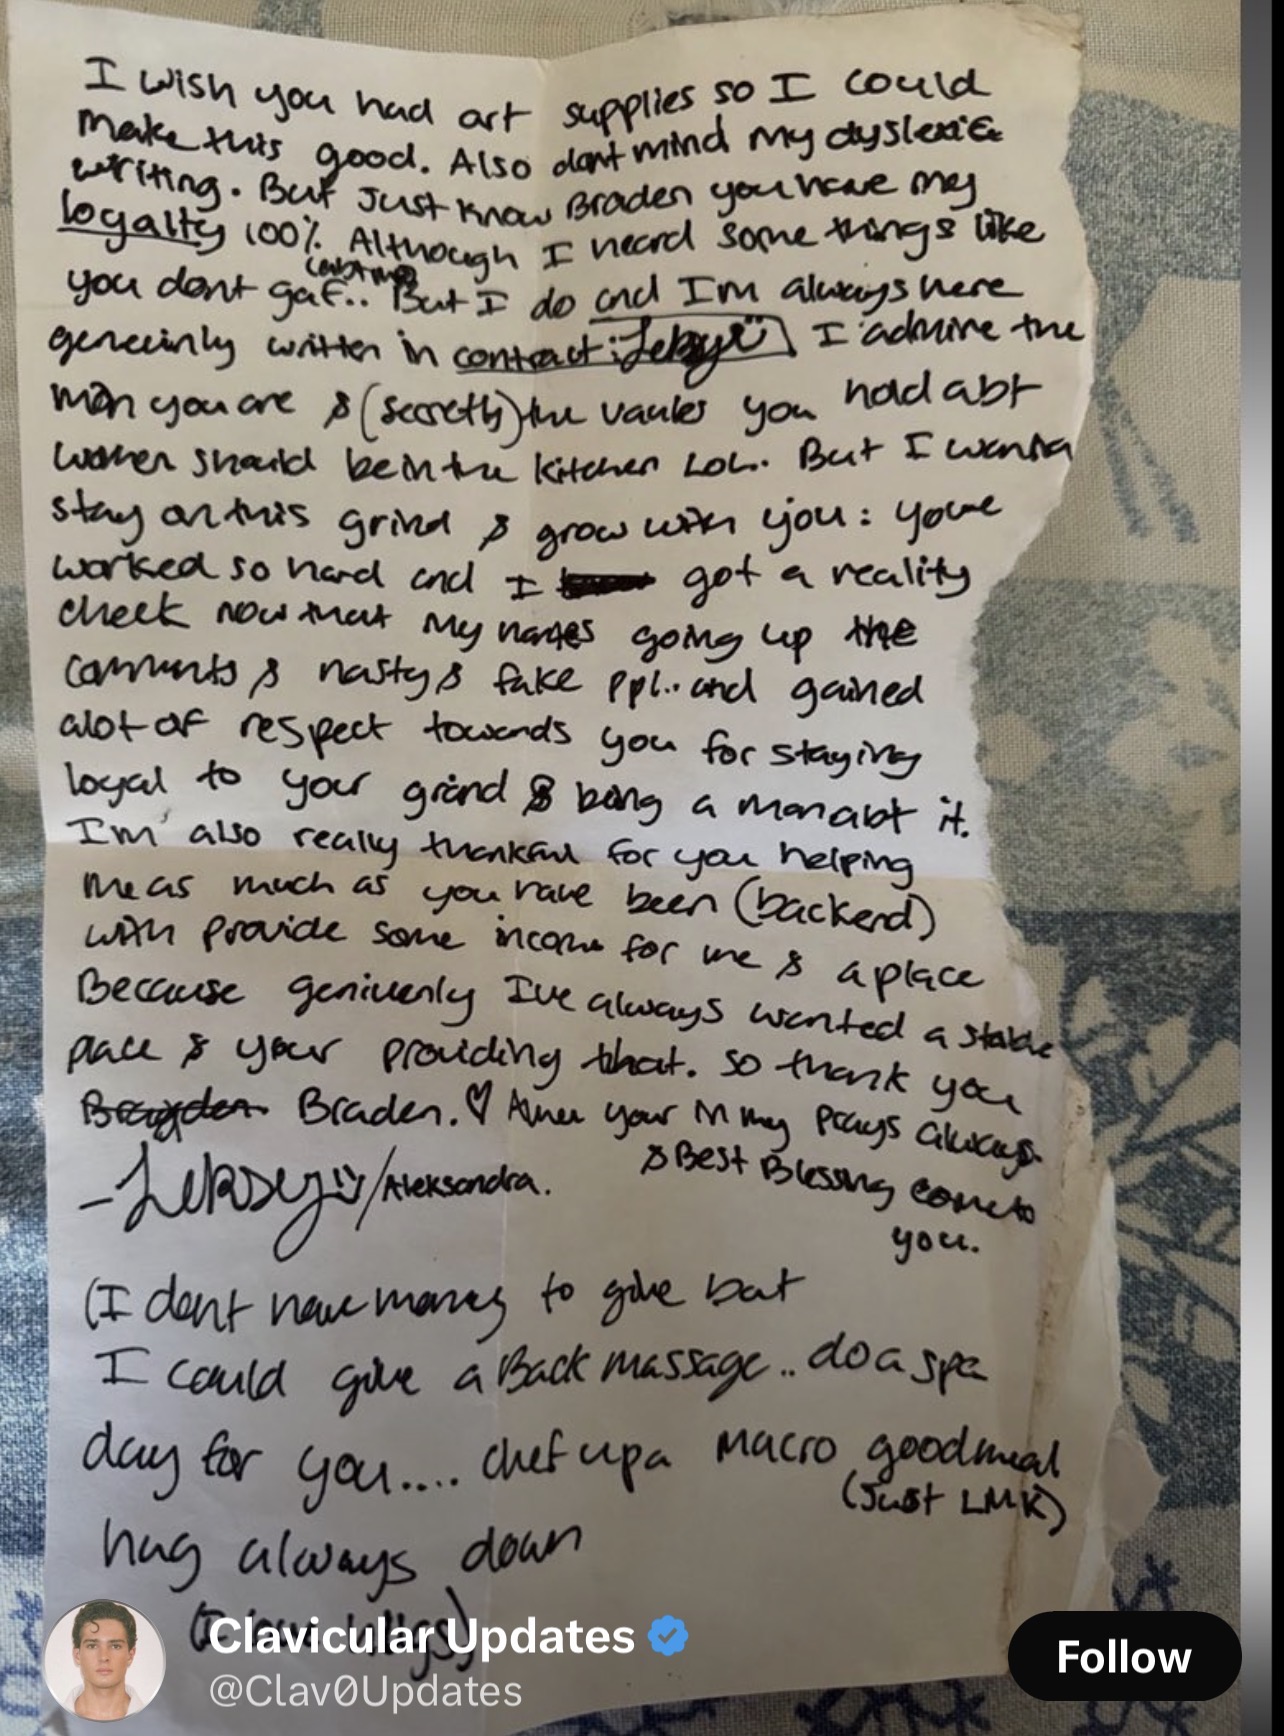 I wish you had art supplies so I could
make this good. Also dont mind my dyslexic
writing. But Just know Braden you have my
loyalty 100%. Although I heard some things like
you dont gaf.. (abt me) But I do and I'm always here
geneuinly written in contract: I admire the
man you are & (secretly) the values you hold abt
women should be in the kitchen LOL. But I wanna
stay on this grind & grow with you: youve
worked so hard and I got a reality
check now that my names going up the
comments & nasty & fake ppl.. and gained
alot of respect towards you for staying
loyal to your grind & being a man abt it.
I'm also really thankful for you helping
me as much as you have been (backend)
with provide some income for me & a place
Because geniuenly I've always wanted a stable
place & your providing that. so thank you
Brayden Braden. ♡ your in my prays always
& Best Blessing come to
you.
/Aleksandra.
(I dont have money to give but
I could give a Back massage.. do a spa
day for you.... chef up a macro good meal
(Just LMK)
hug always down
Clavicular Updates
@Clav0Updates
Follow